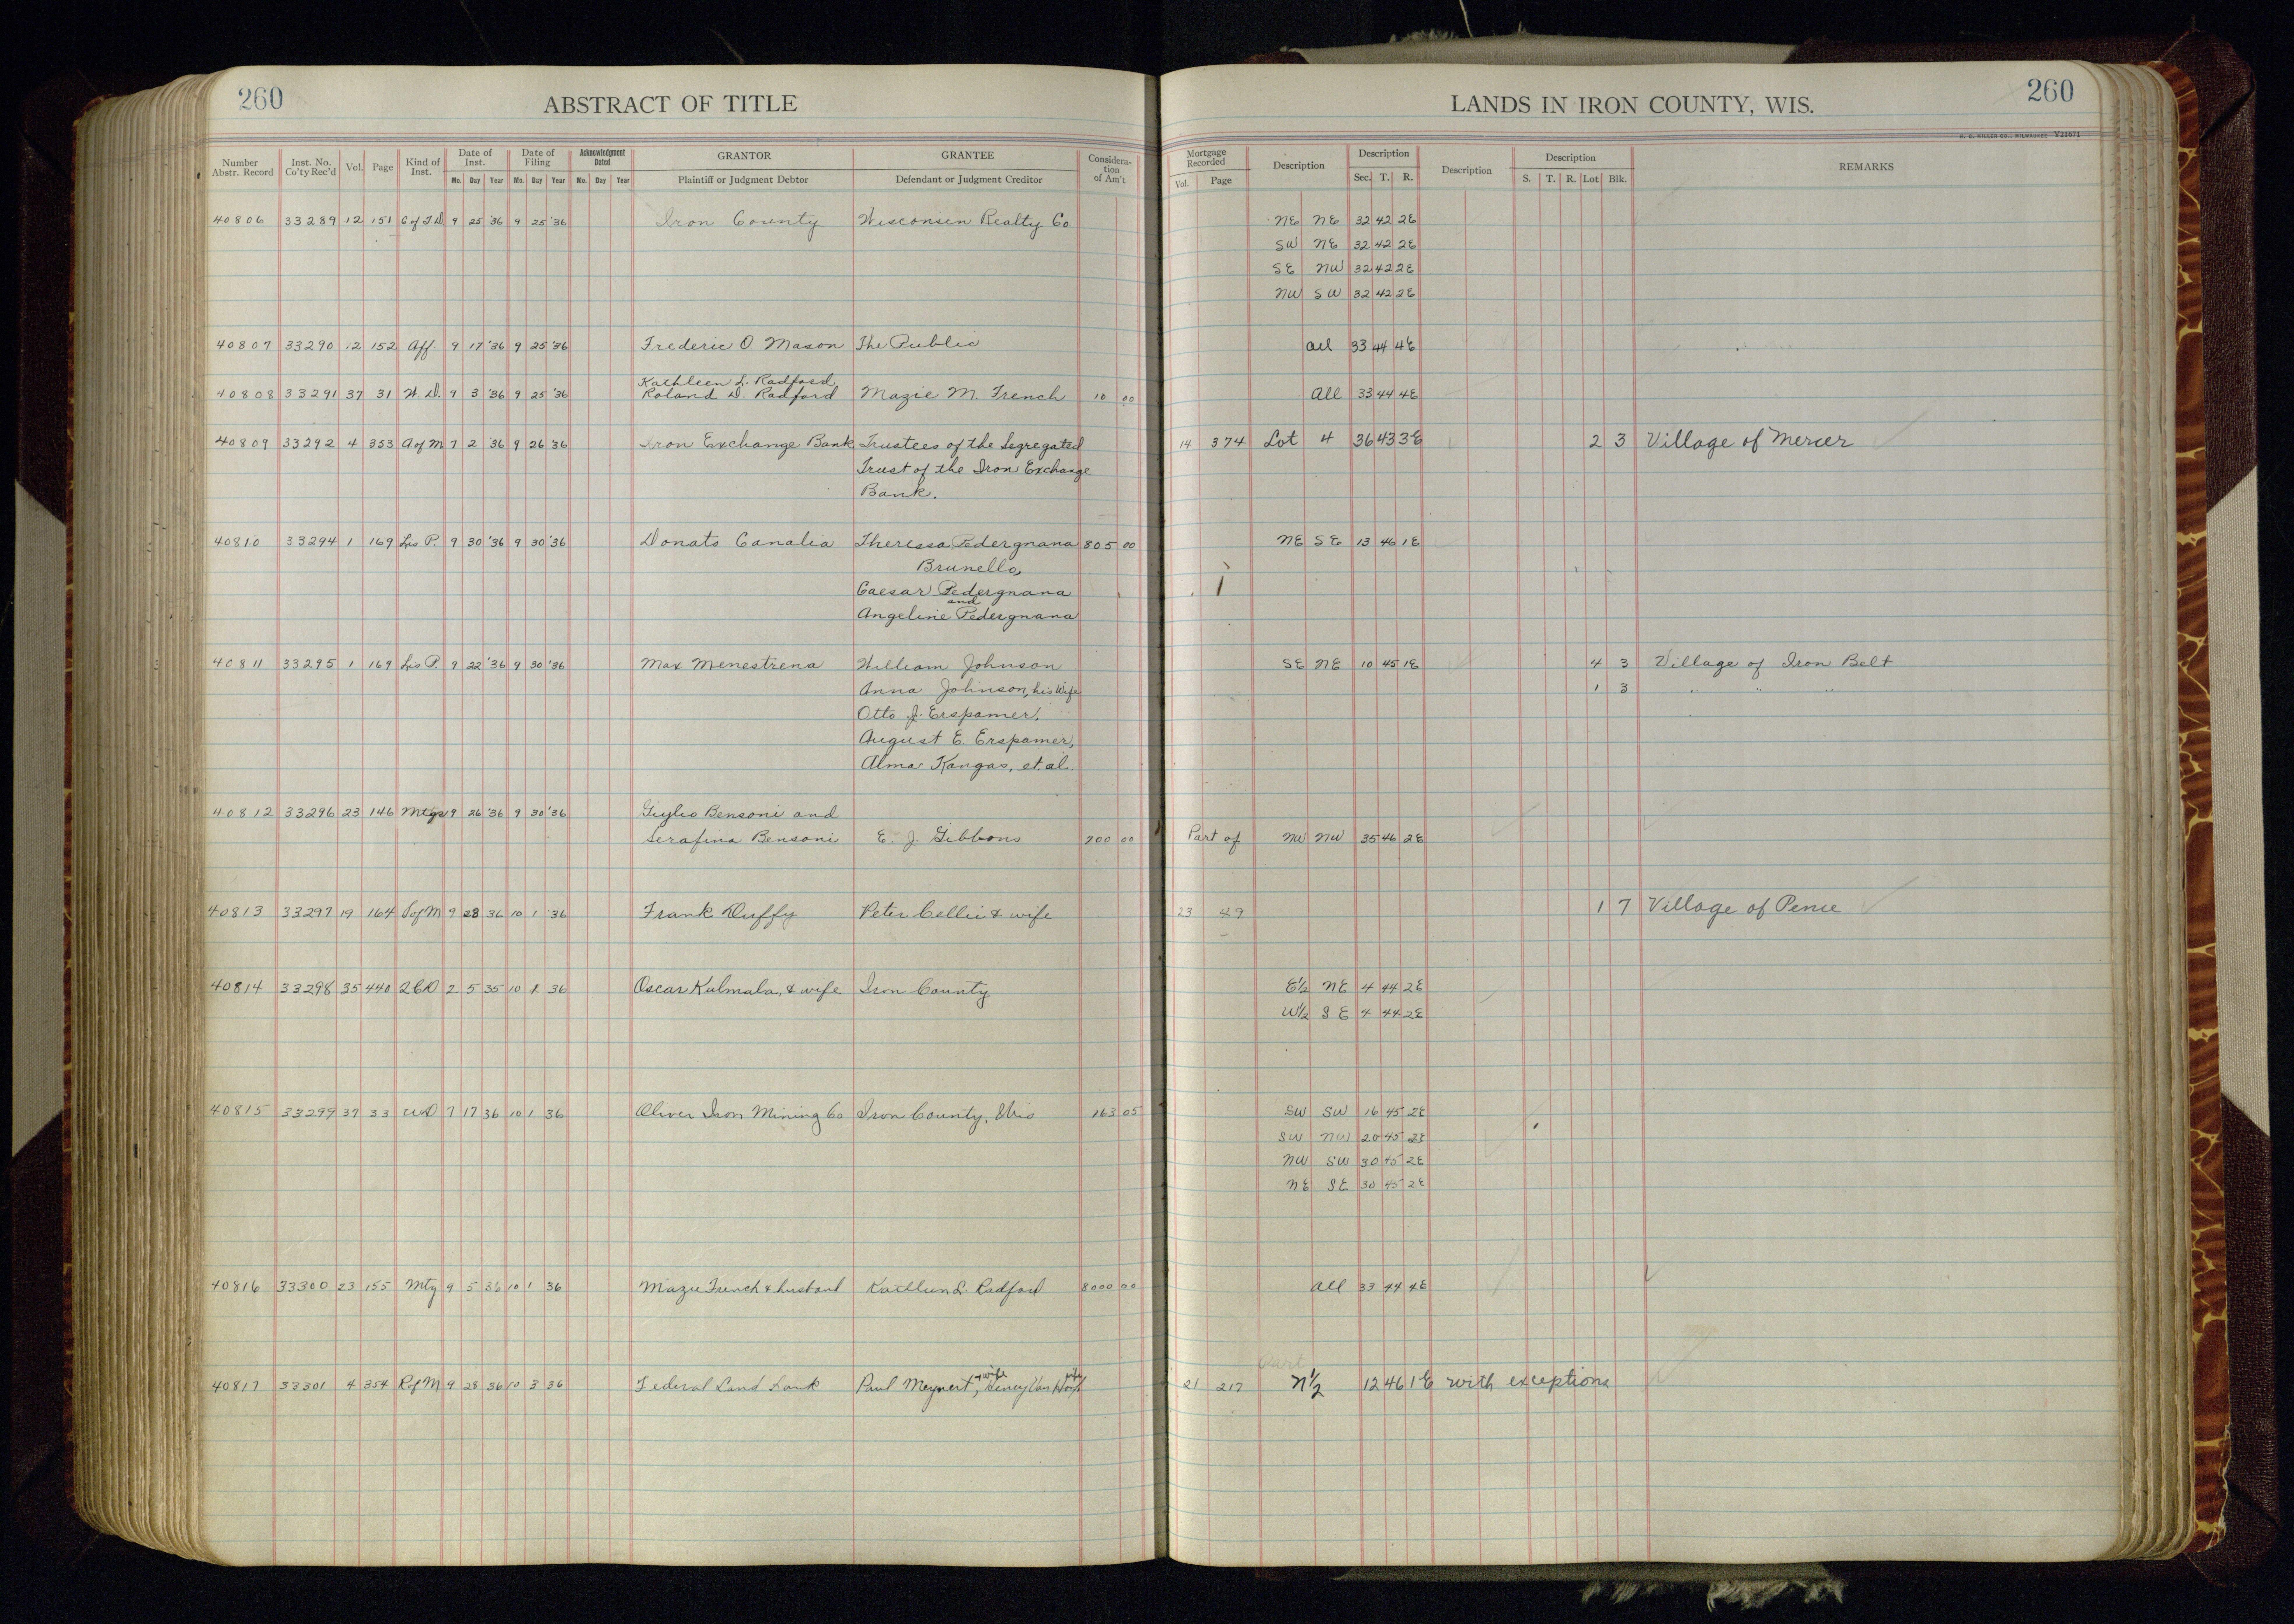 260 ABSTRACT OF TITLE LANDS IN IRON COUNTY, WIS. 260
H. C. MILLER CO., MILWAUKEE V21671
Number Abstr. Record Inst. No. Co'ty Rec'd Vol. Page Kind of Inst. Date of Inst. Mo. Day Year Date of Filing Mo. Day Year Acknowledgment Dated Mo. Day Year GRANTOR Plaintiff or Judgment Debtor GRANTEE Defendant or Judgment Creditor Consideration of Am't Mortgage Recorded Vol. Page Description Description Sec. T. R. Description Description S. T. R. Lot Blk. REMARKS
40806 33289 12 151 C of T D 9 25 '36 9 25 '36 Iron County Wisconsin Realty Co. NE NE 32 42 2E
SW NE 32 42 2E
SE NW 32 42 2E
NW SW 32 42 2E
40807 33290 12 152 Aff. 9 17 '36 9 25 '36 Frederic O Mason The Public all 33 44 4E
Kathleen L. Radford,
40808 33291 37 31 W. D. 9 3 '36 9 25 '36 Roland D. Radford Mazie M. French 10 00 All 33 44 4E
40809 33292 4 353 A of M 7 2 '36 9 26 '36 Iron Exchange Bank Trustees of the Segregated 14 374 Lot 4 36 43 3E 2 3 Village of Mercer
Trust of the Iron Exchange
Bank.
40810 33294 1 169 Lis P. 9 30 '36 9 30 '36 Donato Canalia Theressa Pedergnana 805 00 NE SE 13 46 1E
Brunello,
Caesar Pedergnana
and
Angeline Pedergnana
40811 33295 1 169 Lis P. 9 22 '36 9 30 '36 Max Menestrena William Johnson SE NE 10 45 1E 4 3 Village of Iron Belt
Anna Johnson, his Wife 1 3 " " "
Otto J. Erspamer,
August E. Erspamer,
Alma Kangas, et. al.
40812 33296 23 146 Mtge 9 26 '36 9 30 '36 Giulio Bensoni and
Serafina Bensoni E. J. Gibbons 700 00 Part of NW NW 35 46 2E
40813 33297 19 164 S of M 9 28 36 10 1 '36 Frank Duffy Peter Cellii & wife 23 49 1 7 Village of Pence
40814 33298 35 440 QCD 2 5 35 10 1 36 Oscar Kulmala, & wife Iron County E½ NE 4 44 2E
W½ SE 4 44 2E
40815 33299 37 33 WD 7 17 36 10 1 36 Oliver Iron Mining Co Iron County, Wis 163 05 SW SW 16 45 2E
SW NW 20 45 2E
NW SW 30 45 2E
NE SE 30 45 2E
40816 33300 23 155 Mtg 9 5 36 10 1 36 Mazie French & husband Kathleen L. Radford 8000 00 all 33 44 4E
Part
40817 33301 4 354 R of M 9 28 36 10 3 36 Federal Land Bank Paul Meynert, & wife Henry Van wife 21 217 N½ 12 46 1E with exceptions